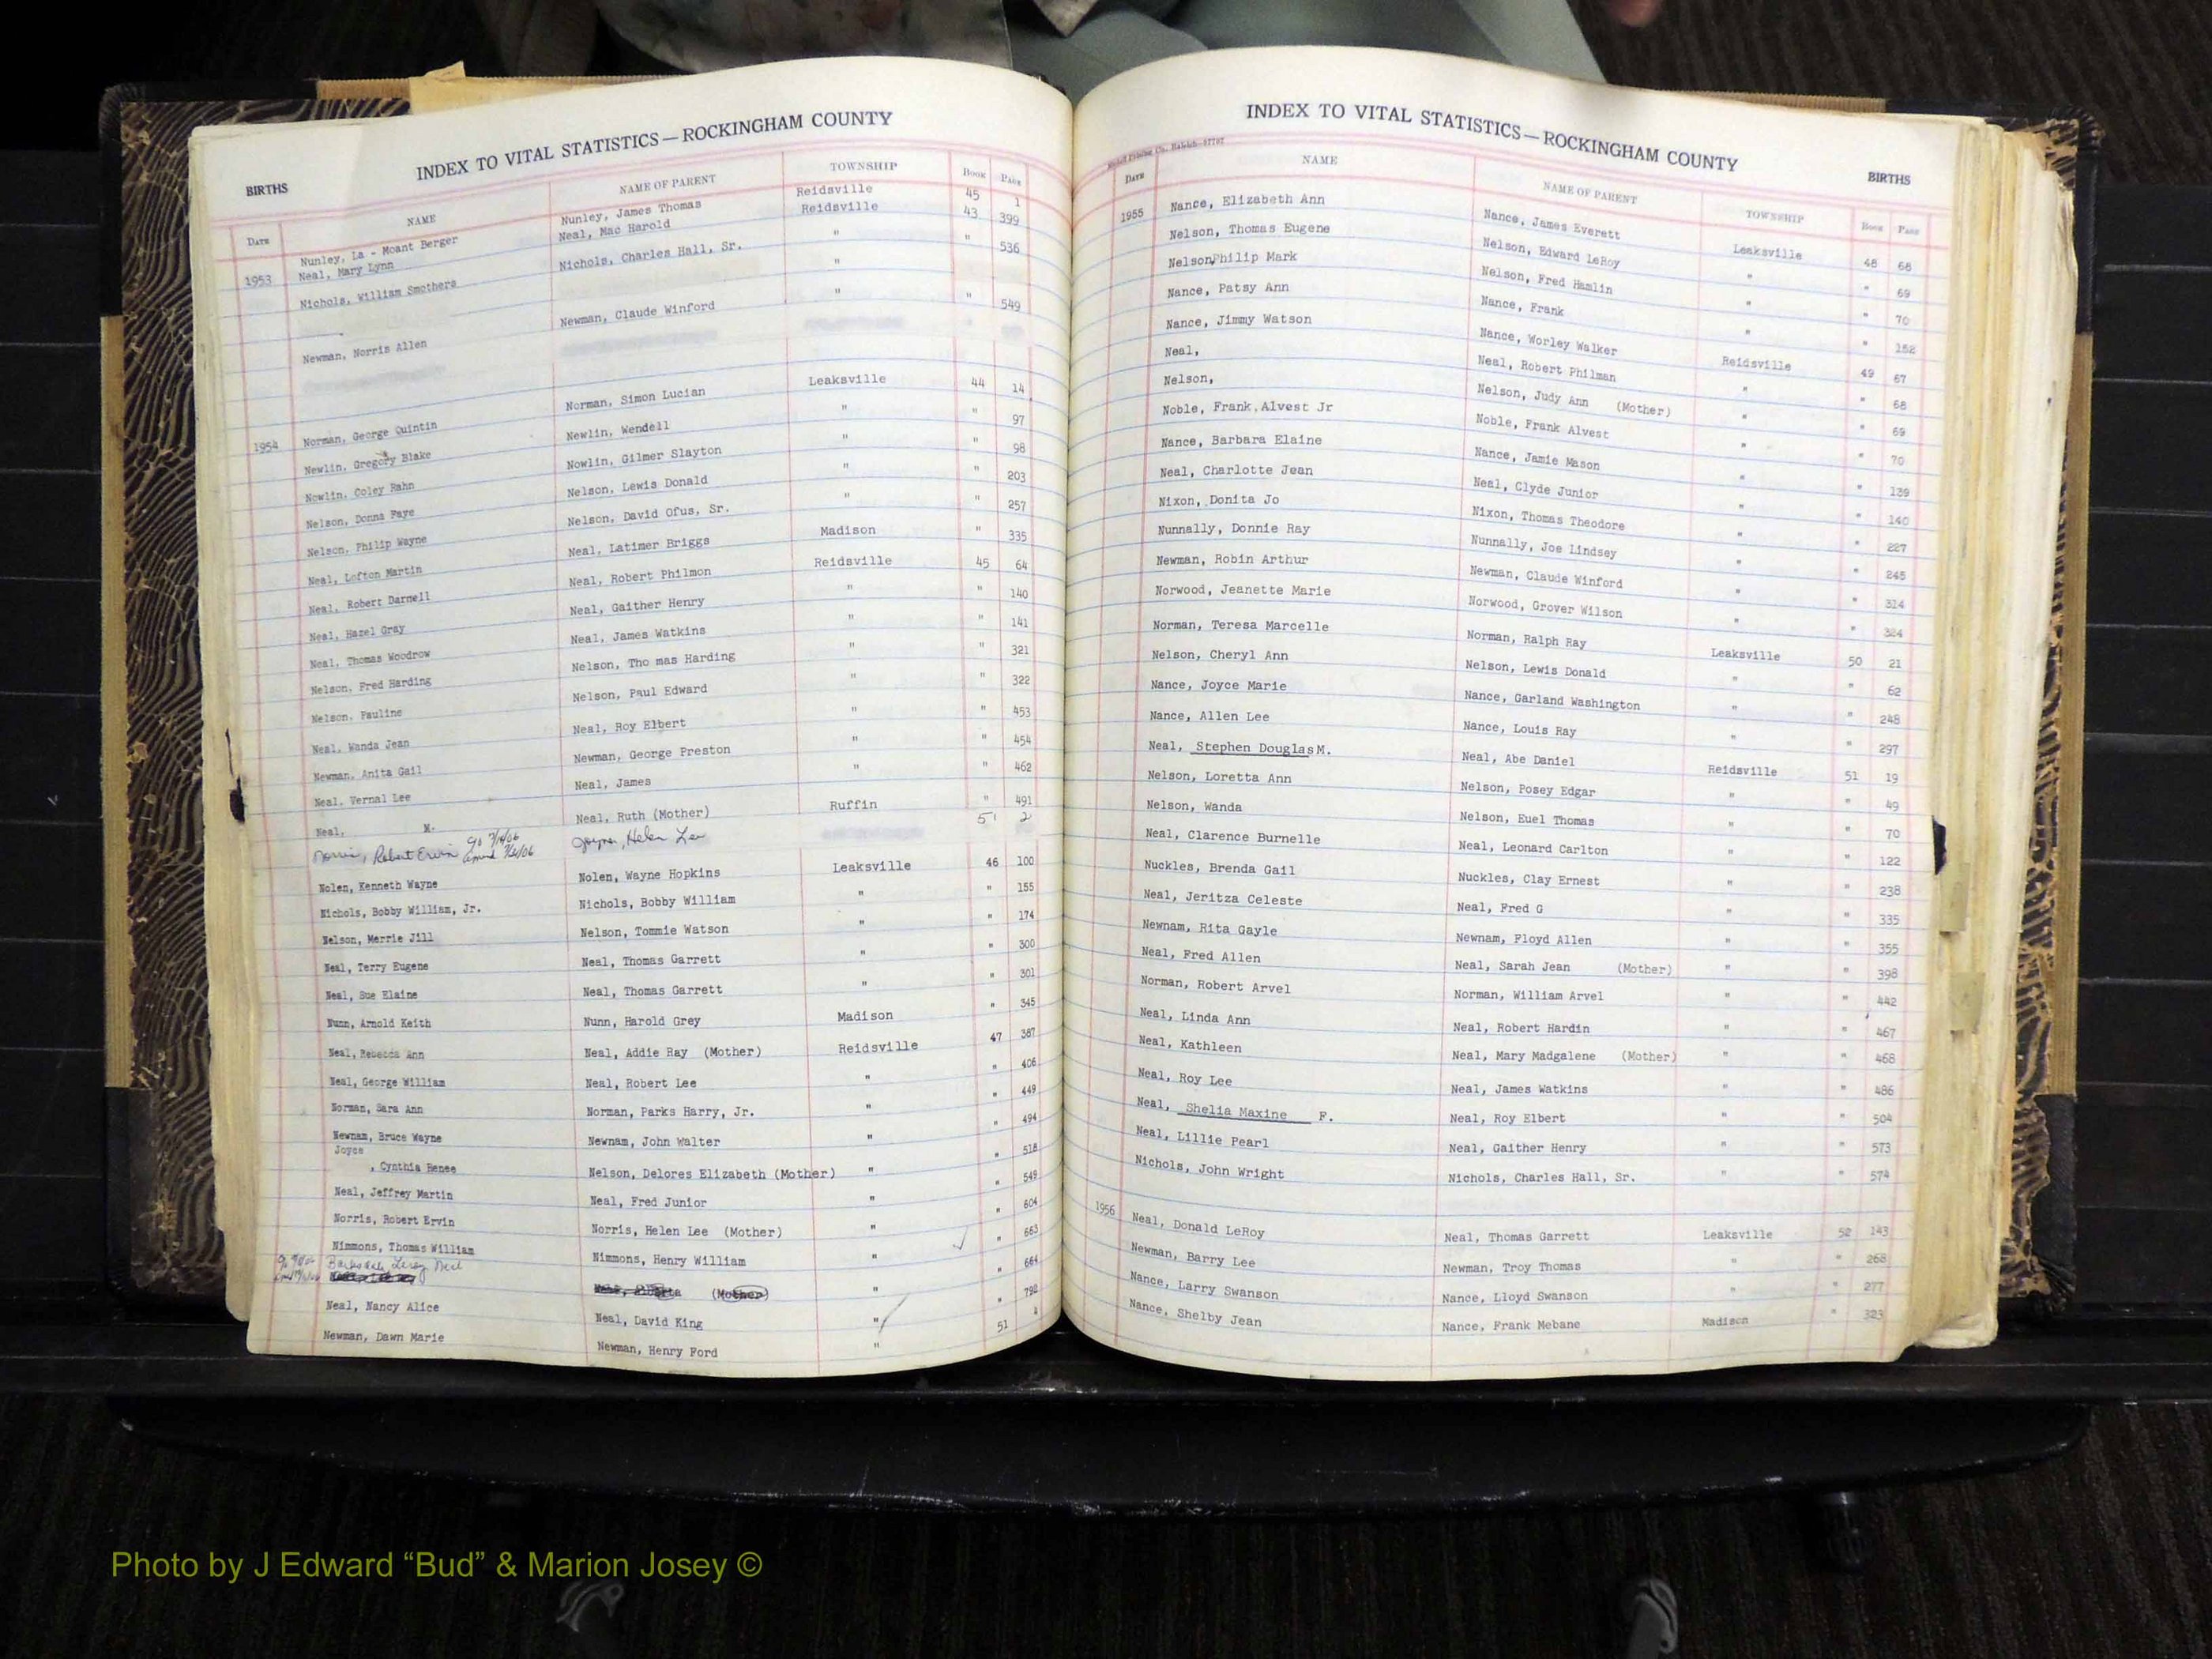 INDEX TO VITAL STATISTICS — ROCKINGHAM COUNTY
BIRTHS
DATE NAME NAME OF PARENT TOWNSHIP BOOK PAGE
Nunley, La - Moant Berger Nunley, James Thomas Reidsville 45 1
1953 Neal, Mary Lynn Neal, Mac Harold Reidsville 43 399
Nichols, William Smothers Nichols, Charles Hall, Sr. " " 536
"
Newman, Norris Allen Newman, Claude Winford " " 549
1954 Norman, George Quintin Norman, Simon Lucian Leaksville 44 14
Newlin, Gregory Blake Newlin, Wendell " " 97
Nowlin, Coley Rahn Nowlin, Gilmer Slayton " " 98
Nelson, Donna Faye Nelson, Lewis Donald " " 203
Nelson, Philip Wayne Nelson, David Ofus, Sr. " " 257
Neal, Lofton Martin Neal, Latimer Briggs Madison " 335
Neal, Robert Darnell Neal, Robert Philmon Reidsville 45 64
Neal, Hazel Gray Neal, Gaither Henry " " 140
Neal, Thomas Woodrow Neal, James Watkins " " 141
Nelson, Fred Harding Nelson, Tho mas Harding " " 321
Nelson, Pauline Nelson, Paul Edward " " 322
Neal, Wanda Jean Neal, Roy Elbert " " 453
Newman, Anita Gail Newman, George Preston " " 454
Neal, Vernal Lee Neal, James " " 462
Neal, M. Neal, Ruth (Mother) Ruffin " 491
Norris, Robert Ervin Joyner, Helen Lee 51 2
Nolen, Kenneth Wayne Nolen, Wayne Hopkins Leaksville 46 100
Nichols, Bobby William, Jr. Nichols, Bobby William " " 155
Nelson, Merrie Jill Nelson, Tommie Watson " " 174
Neal, Terry Eugene Neal, Thomas Garrett " " 300
Neal, Sue Elaine Neal, Thomas Garrett " " 301
Nunn, Arnold Keith Nunn, Harold Grey Madison " 345
Neal, Rebecca Ann Neal, Addie Ray (Mother) Reidsville 47 387
Neal, George William Neal, Robert Lee " " 406
Norman, Sara Ann Norman, Parks Harry, Jr. " " 449
Newnam, Bruce Wayne Newnam, John Walter " " 494
Joyce
, Cynthia Renee Nelson, Delores Elizabeth (Mother) " " 518
Neal, Jeffrey Martin Neal, Fred Junior " " 549
Norris, Robert Ervin Norris, Helen Lee (Mother) " " 604
Nimmons, Thomas William Nimmons, Henry William " " 663
(Mother) " " 664
Neal, Nancy Alice Neal, David King " " 792
Newman, Dawn Marie Newman, Henry Ford " 51 4
INDEX TO VITAL STATISTICS — ROCKINGHAM COUNTY
BIRTHS
DATE NAME NAME OF PARENT TOWNSHIP BOOK PAGE
1955 Nance, Elizabeth Ann Nance, James Everett Leaksville 48 68
Nelson, Thomas Eugene Nelson, Edward LeRoy " " 69
Nelson, Philip Mark Nelson, Fred Hamlin " " 70
Nance, Patsy Ann Nance, Frank " " 152
Nance, Jimmy Watson Nance, Worley Walker Reidsville 49 67
Neal, Neal, Robert Philman " " 68
Nelson, Nelson, Judy Ann (Mother) " " 69
Noble, Frank, Alvest Jr Noble, Frank Alvest " " 70
Nance, Barbara Elaine Nance, Jamie Mason " " 139
Neal, Charlotte Jean Neal, Clyde Junior " " 140
Nixon, Donita Jo Nixon, Thomas Theodore " " 227
Nunnally, Donnie Ray Nunnally, Joe Lindsey " " 245
Newman, Robin Arthur Newman, Claude Winford " " 314
Norwood, Jeanette Marie Norwood, Grover Wilson " " 324
Norman, Teresa Marcelle Norman, Ralph Ray Leaksville 50 21
Nelson, Cheryl Ann Nelson, Lewis Donald " " 62
Nance, Joyce Marie Nance, Garland Washington " " 248
Nance, Allen Lee Nance, Louis Ray " " 297
Neal, Stephen Douglas M. Neal, Abe Daniel Reidsville 51 19
Nelson, Loretta Ann Nelson, Posey Edgar " " 49
Nelson, Wanda Nelson, Euel Thomas " " 70
Neal, Clarence Burnelle Neal, Leonard Carlton " " 122
Nuckles, Brenda Gail Nuckles, Clay Ernest " " 238
Neal, Jeritza Celeste Neal, Fred G " " 335
Newnam, Rita Gayle Newnam, Floyd Allen " " 355
Neal, Fred Allen Neal, Sarah Jean (Mother) " " 398
Norman, Robert Arvel Norman, William Arvel " " 442
Neal, Linda Ann Neal, Robert Hardin " " 467
Neal, Kathleen Neal, Mary Madgalene (Mother) " " 468
Neal, Roy Lee Neal, James Watkins " " 486
Neal, Shelia Maxine F. Neal, Roy Elbert " " 504
Neal, Lillie Pearl Neal, Gaither Henry " " 573
Nichols, John Wright Nichols, Charles Hall, Sr. " " 574
1956 Neal, Donald LeRoy Neal, Thomas Garrett Leaksville 52 143
Newman, Barry Lee Newman, Troy Thomas " " 268
Nance, Larry Swanson Nance, Lloyd Swanson " " 277
Nance, Shelby Jean Nance, Frank Mebane Madison " 323
Photo by J Edward “Bud” & Marion Josey ©